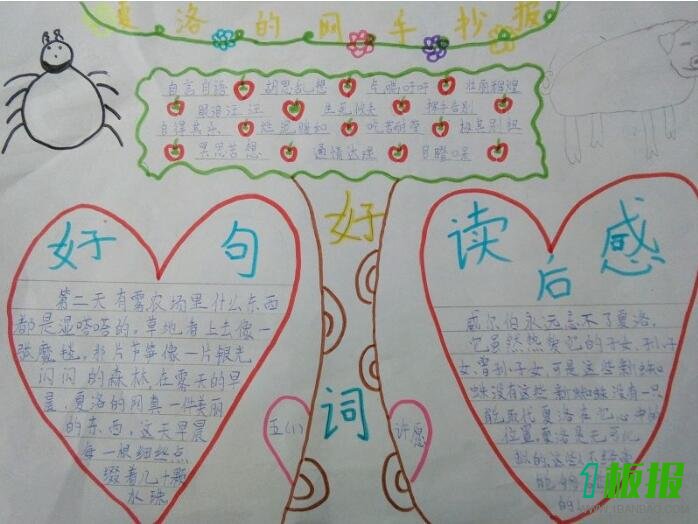 夏洛的网手抄报
自言自语 胡思乱想 气喘吁吁 壮丽辉煌
眼泪汪汪 生死攸关 挥手告别
自得其乐 烂泥 吃苦耐劳 极其别扭
冥思苦想 通情达理 目瞪口呆
好词
好句
第二天有雾农场里什么东西
都是湿嗒嗒的,草地看上去像一
张魔毯,那片芦笋像一片银光
闪闪的森林,在雾天的早
晨,夏洛的网真一件美丽
的东西,这天早晨
每一根细丝点
缀着几十颗
水珠
读后感
威尔伯永远忘不了夏洛,
它虽然热爱它的子女、孙子
女、曾孙子女,可是这些新蜘
蛛没有这些新蜘蛛没有一只
能取代夏洛在它心中的
位置夏洛是无可比
拟的,这
的
五(1)
许愿
1板报
WWW.1BANBAO.COM